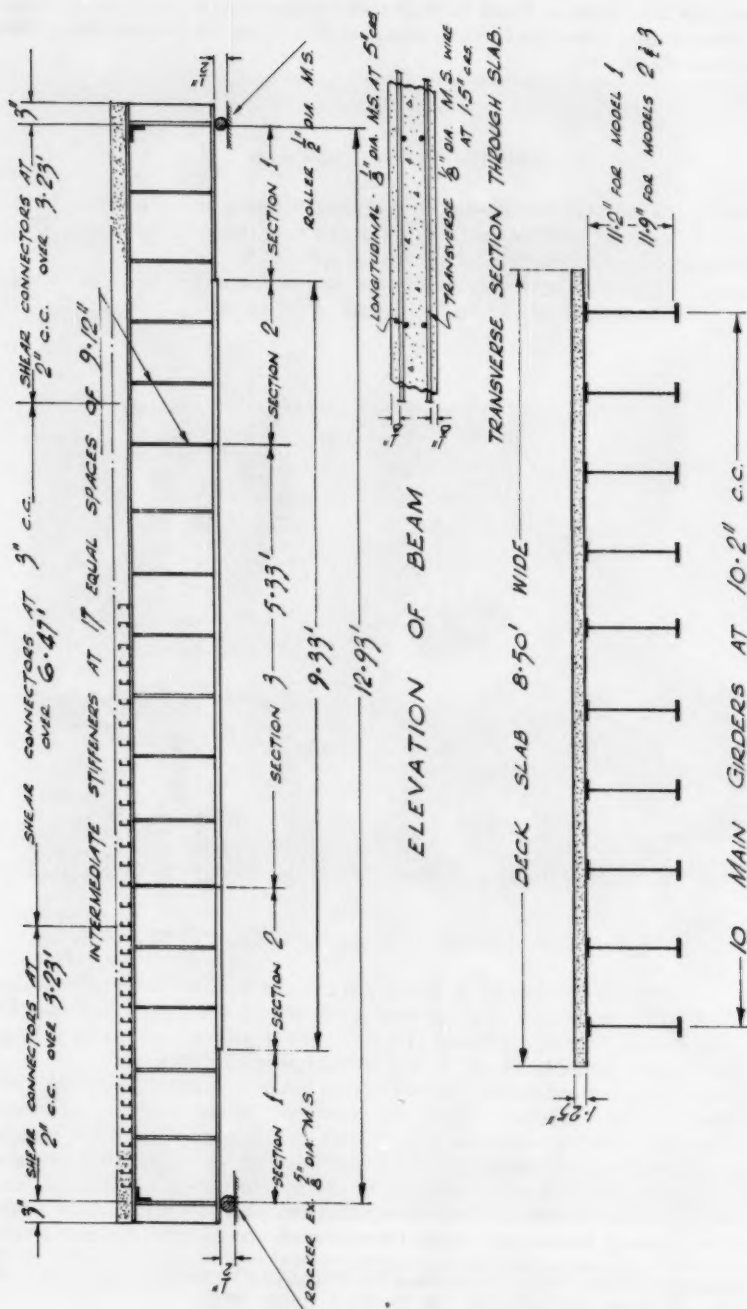 3"
SHEAR CONNECTORS AT
2" C.C. OVER 3·23'
SHEAR CONNECTORS AT 3" C.C.
OVER 6·47'
SHEAR CONNECTORS AT
2" C.C. OVER 3·23'
3"
INTERMEDIATE STIFFENERS AT 17 EQUAL SPACES OF 9·12"
1/2"
1/2"
SECTION 1
SECTION 2
SECTION 3
5·33'
SECTION 2
SECTION 1
ROCKER EX. 5/8" DIA. M.S.
ROLLER 1/2" DIA M.S.
9·33'
12·93'
ELEVATION OF BEAM
LONGITUDINAL - 1/8" DIA M.S. AT 5" CRS
TRANSVERSE 1/8" DIA. M.S. WIRE
AT 1·5" CRS.
1/8"
1/8"
TRANSVERSE SECTION THROUGH SLAB.
DECK SLAB 8·50' WIDE
1·25"
11·2" FOR MODEL 1
11·9" FOR MODELS 2 & 3
10 MAIN GIRDERS AT 10·2" C.C.